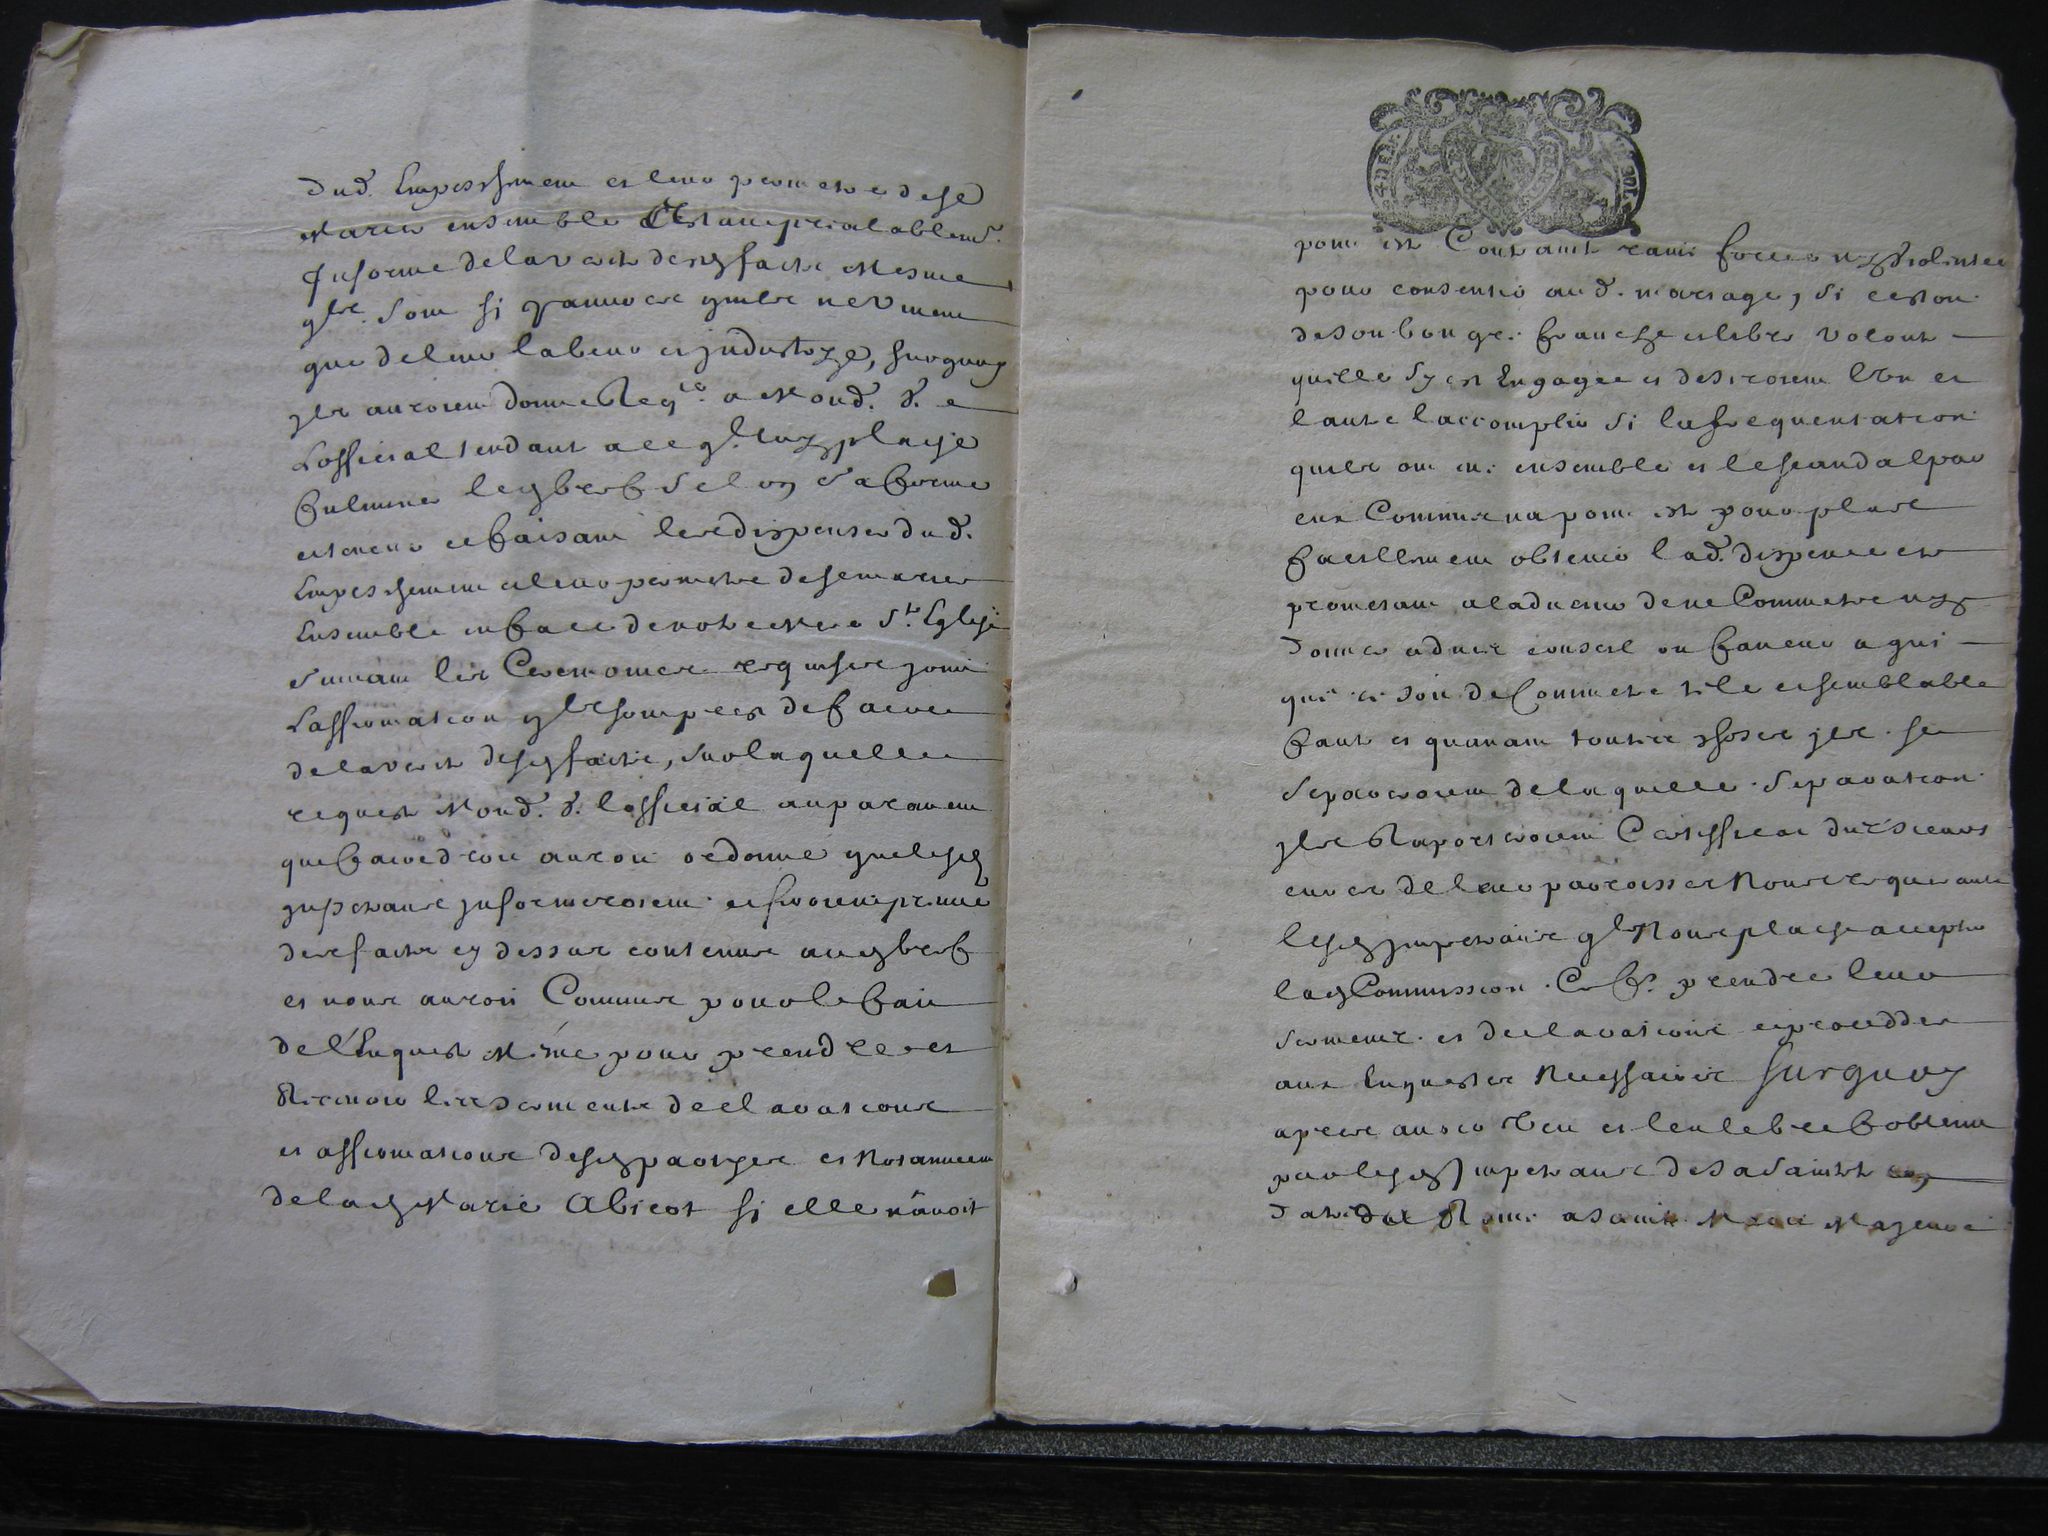 dud. Empeschement et leur permetre de se
Marier ensemble Estant prealablemt.
Informe de la verité desd. faicts Mesme
qlz. sont si pauvres quilz ne vivent
que de leur labeur et industrye, surquoy
ilz auroient donné Reqte. a Mond. Sr.
Lofficial tendant a ce ql. luy plaise
fulminer led. bref selon sa forme
et teneur et faisant les dispenser dud.
Empeschement et leur permetre de se marier
Ensemble en face de notre Mere Ste. Eglise
suivant les Ceremonies requises joint
Laffirmation qlz sont prests de faire
de la verité desd. faicts, sur laquelle
requeste Mond. Sr. lofficial auparavant
que faire droit auroit ordonné que lesd.
impetrans informeroient et feroient preuve
des faicts cy dessus contenus aud. bref
et nous auroit Commis pour le fait
de l'Enqueste Mesme pour prendre et
Recevoir les sermentz declarations
et affirmations desd. partyes et Notamment
de lad. Marie Abicot si elle n'avoit
point esté Contraint ravie forcée ny violentée
pour consentir aud. mariage, si cest
de son bon gré franche et libre volonté
quelle sy est Engagée et desiroient lun et
lautre laccomplir si la frequentation
quilz ont eu ensemble et le scandal par
eux Commis na point esté pour plus
facillement obtenir lad. dispence et
promectant a ladvenir de ne Commetre ny
donner advis conseil ou faveur a qui
que ce soit de Commetre tel et semblable
faute et quavant toutes choses ilz se
separeroient de laquelle separation
ilz Raporteroient Certifficat des sieurs
curez de leur paroisses Nous requerant
lesd. impetrans ql Nous plaise accepter
lad. Commission Ce f. prendre leur
serment et declarations et procedder
aux Enquestes Necessaires surquoy
apres avoir veu et leu le bref obtenu
par lesd. Impetrans de sa Saincteté en
date de Rome a saincte Marie Majeure